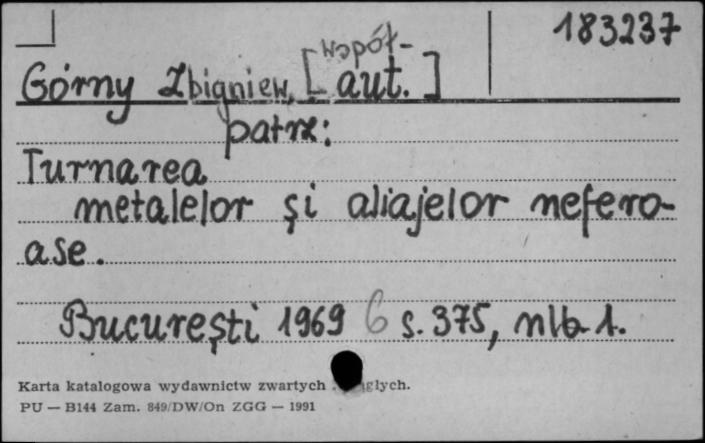 183237
współ-
Górny Zbigniew, [aut.]
patrz:
Turnarea
metalelor şi aliajelor nefero-
ase.
Bucureşti 1969 6 s. 375, nlb 1.
Karta katalogowa wydawnictw zwartych
PU — B144 Zam. 849/DW/On ZGG — 1991